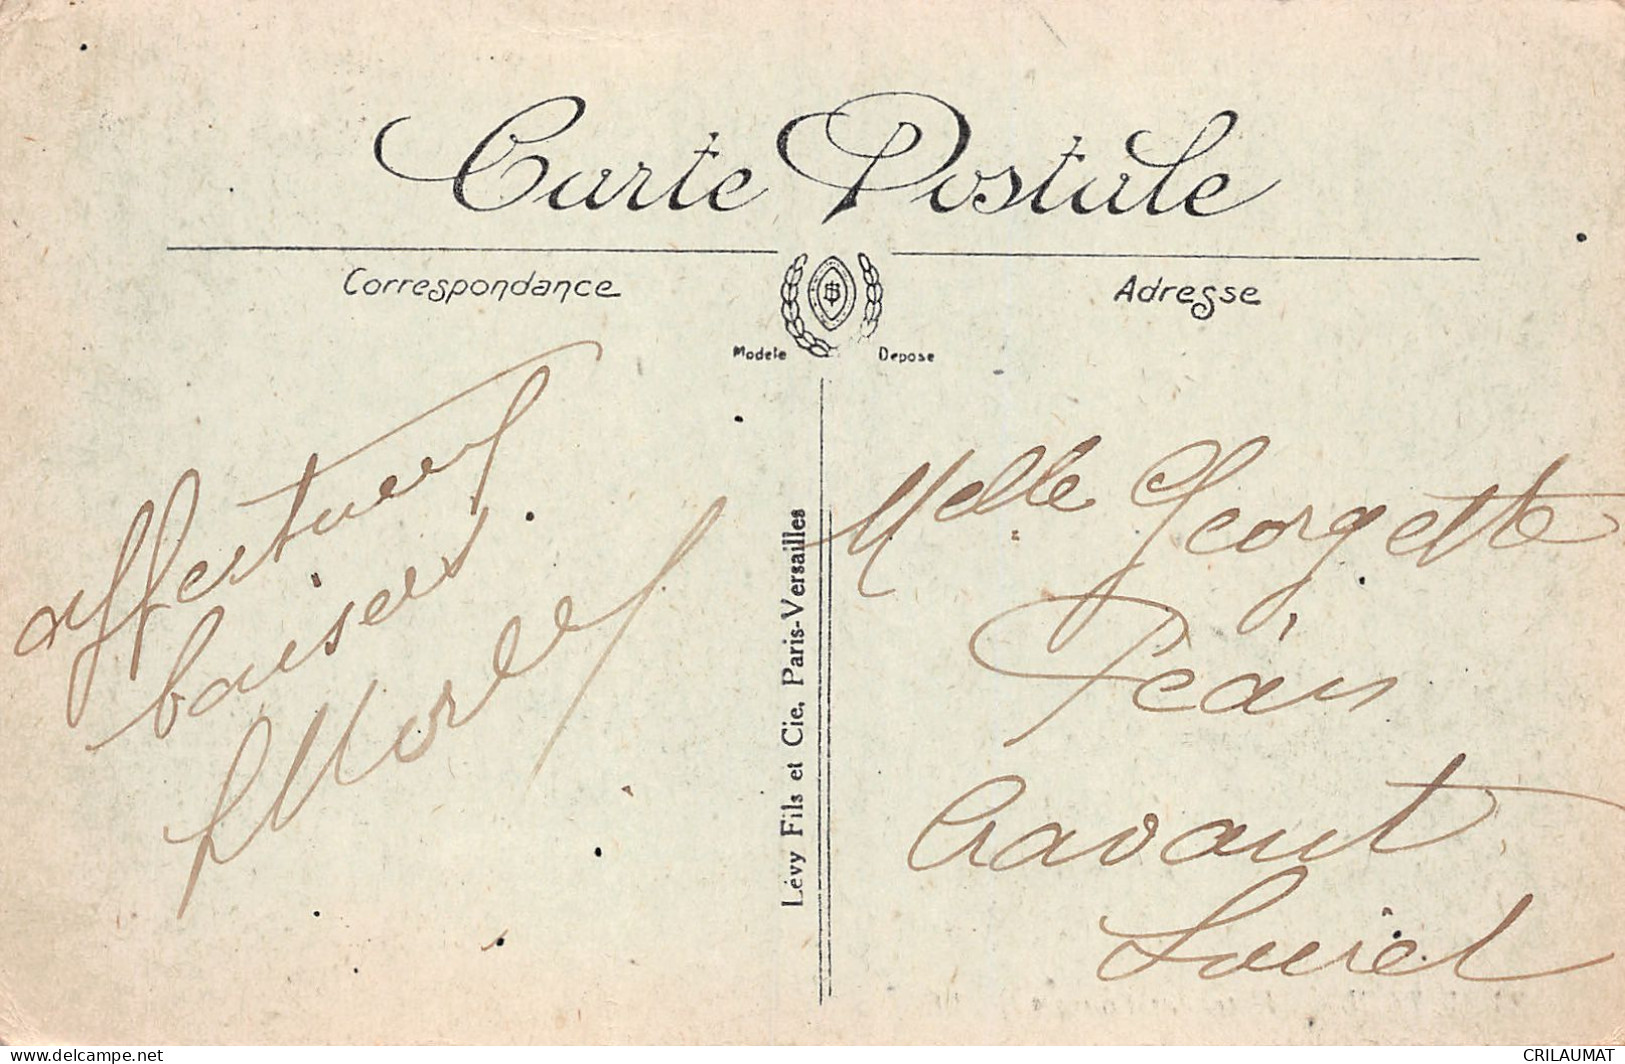 Carte Postale
Correspondance
Adresse
Modele Depose
affectueux
baisers
Lévy Fils et Cie, Paris-Versailles
Melle Georgette
Péan
Cravant
Loiret
www.delcampe.net
CRILAUMAT